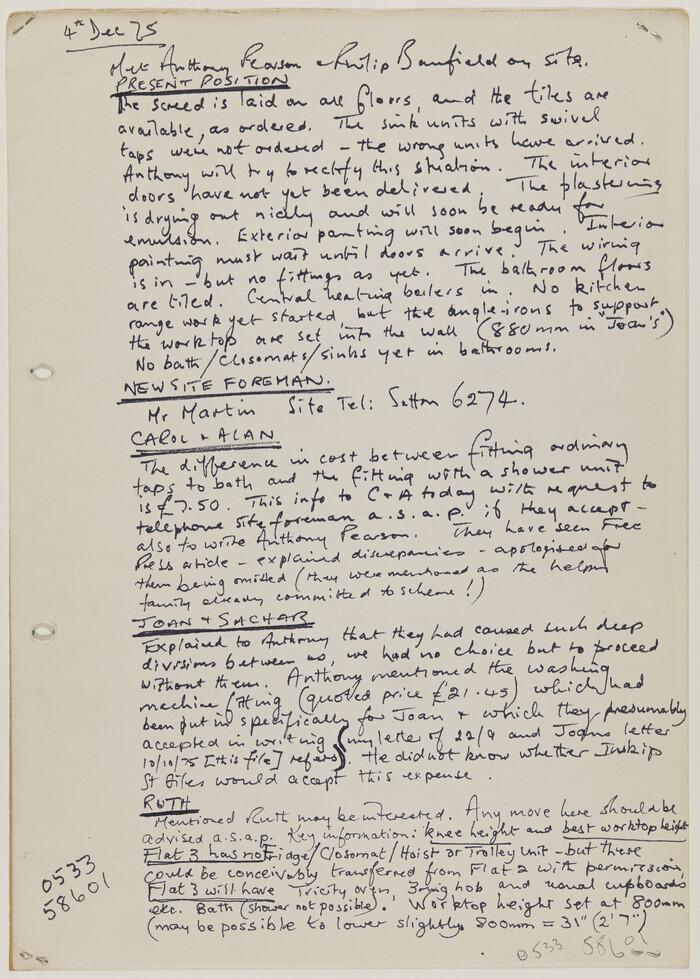 4th Dec 75
Met Anthony Pearson & Philip Banfield on site.
PRESENT POSITION
The screed is laid on all floors, and the tiles are
available, as ordered. The sink units with swivel
taps were not ordered - the wrong units have arrived.
Anthony will try to rectify this situation. The interior
doors have not yet been delivered. The plastering
is drying out nicely and will soon be ready for
emulsion. Exterior painting will soon begin. Interior
painting must wait until doors arrive. The wiring
is in - but no fittings as yet. The bathroom floors
are tiled. Central heating boilers in. No kitchen
range work yet started but the angle-irons to support
the worktop are set into the wall (880mm in "Joan's")
No bath/Closomats/sinks yet in bathrooms.
NEW SITE FOREMAN.
Mr Martin Site Tel: Sutton 6274.
CAROL & ALAN
The difference in cost between fitting ordinary
taps to bath and the fitting with a shower unit
is £7.50. This info to C & A today with request to
telephone site foreman a.s.a.p. if they accept -
also to write Anthony Pearson. They have seen Free
Press article - explained discrepancies - apologised for
them being omitted (they were mentioned as the helping
family already committed to scheme!)
JOAN & SACHAR
Explained to Anthony that they had caused such deep
divisions between us, we had no choice but to proceed
without them. Anthony mentioned the washing
machine fitting (quoted price £21.45) which had
been put in specifically for Joan & which they presumably
accepted in writing {my letter of 22/9 and Joans letter
10/10/75 [this file] refers}. He did not know whether Inskip
St Giles would accept this expense.
RUTH
Mentioned Ruth may be interested. Any move here should be
advised a.s.a.p. Key information: knee height and best worktop height
Flat 3 has not Fridge/Closomat/Hoist or Trolley Unit - but these
could be conceivably transferred from Flat 2 with permission.
Flat 3 will have Tricity oven, 3 ring hob and usual cupboards
etc. Bath (shower not possible). Worktop height set at 800mm
(may be possible to lower slightly. 800mm = 31" (2' 7")
0533
58601
0533 58601